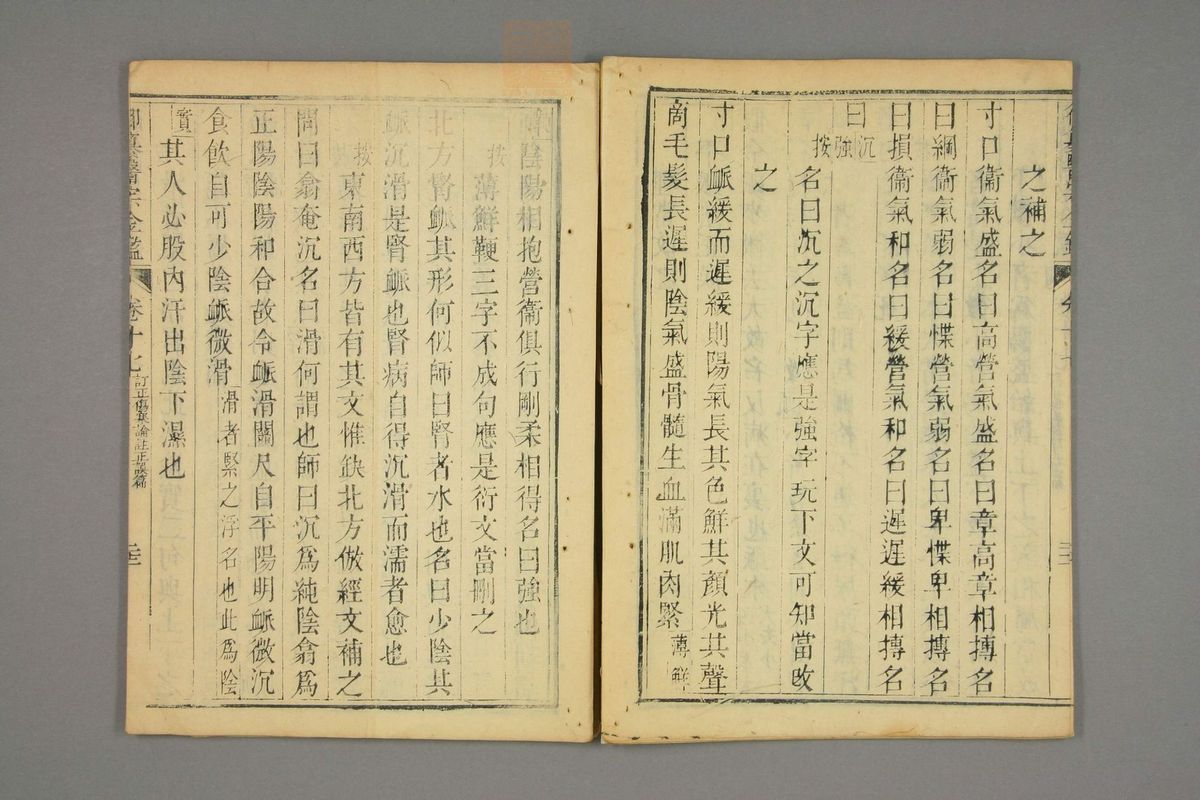 之補之
寸口衞氣盛名曰高營氣盛名曰章高章相摶名
曰綱衞氣弱名曰惵營氣弱名曰卑惵卑相摶名
曰損衞氣和名曰緩營氣和名曰遲遲緩相摶名
曰沉強
按名曰沉之沉字應是強字玩下文可知當改
之
寸口䘑緩而遲緩則陽氣長其色鮮其顏光其聲
商毛髮長遲則陰氣盛骨髓生血滿肌肉緊薄鮮
陰陽相抱營衞俱行剛柔相得名曰強也
按薄鮮鞕三字不成句應是衍文當刪之
北方腎䘑其形何似師曰腎者水也名曰少陰其
䘑沉滑是腎䘑也腎病自得沉滑而濡者愈也
按東南西方皆有其文惟缺北方倣經文補之
問曰翕奄沉名曰滑何謂也師曰沉為純陰翕為
正陽陰陽和合故令䘑滑關尺自平陽明䘑微沉
食飲自可少陰䘑微滑滑者緊之浮名也此為陰
實其人必股內汗出陰下濕也
御纂醫宗金鑑 卷十七 訂正傷寒論註正誤篇